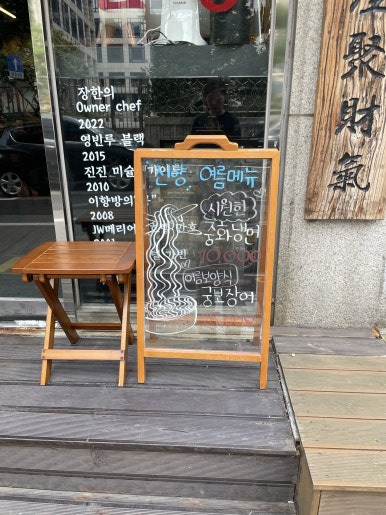 장한의
Owner chef
2022
영빈루 블랙
2015
진진 미슐
2010
이향방의
2008
JW메리어
2001
여름메뉴
시원한
중화냉면
10,000
여름보양식
궁보장어
聚
財
氣